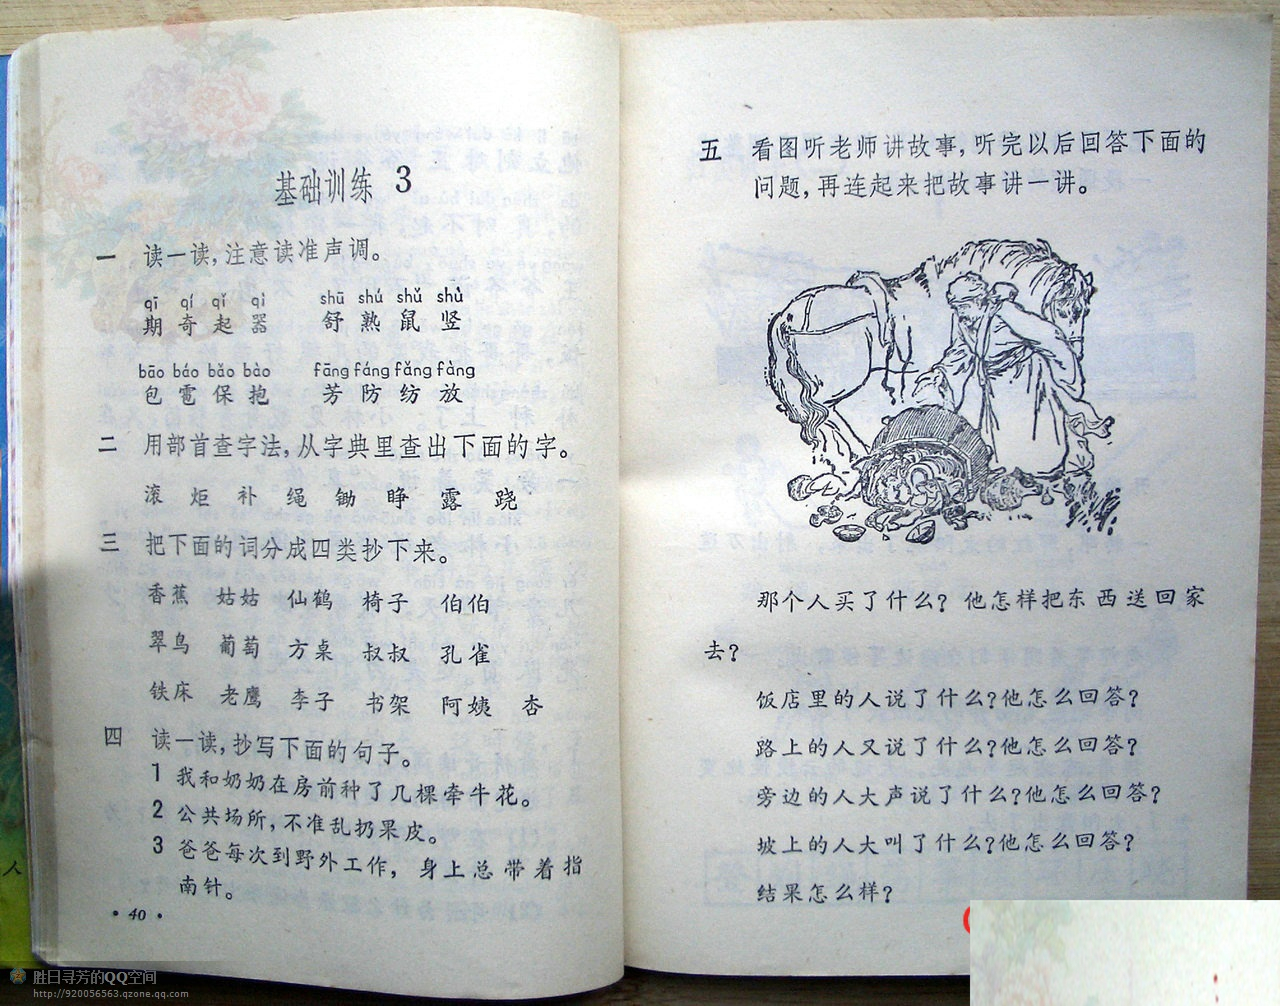 基础训练 3
一 读一读,注意读准声调。
qī qí qǐ qì shū shú shǔ shù
期 奇 起 器 舒 熟 鼠 竖
bāo báo bǎo bào fāng fáng fǎng fàng
包 雹 保 抱 芳 防 纺 放
二 用部首查字法,从字典里查出下面的字。
滚 炬 补 绳 锄 睁 露 跷
三 把下面的词分成四类抄下来。
香蕉 姑姑 仙鹤 椅子 伯伯
翠鸟 葡萄 方桌 叔叔 孔雀
铁床 老鹰 李子 书架 阿姨 杏
四 读一读,抄写下面的句子。
1 我和奶奶在房前种了几棵牵牛花。
2 公共场所,不准乱扔果皮。
3 爸爸每次到野外工作,身上总带着指
南针。
· 40 ·
五 看图听老师讲故事,听完以后回答下面的
问题,再连起来把故事讲一讲。
那个人买了什么?他怎样把东西送回家
去?
饭店里的人说了什么?他怎么回答?
路上的人又说了什么?他怎么回答?
旁边的人大声说了什么?他怎么回答?
坡上的人大叫了什么?他怎么回答?
结果怎么样?
人
胜日寻芳的QQ空间
http://920056563.qzone.qq.com